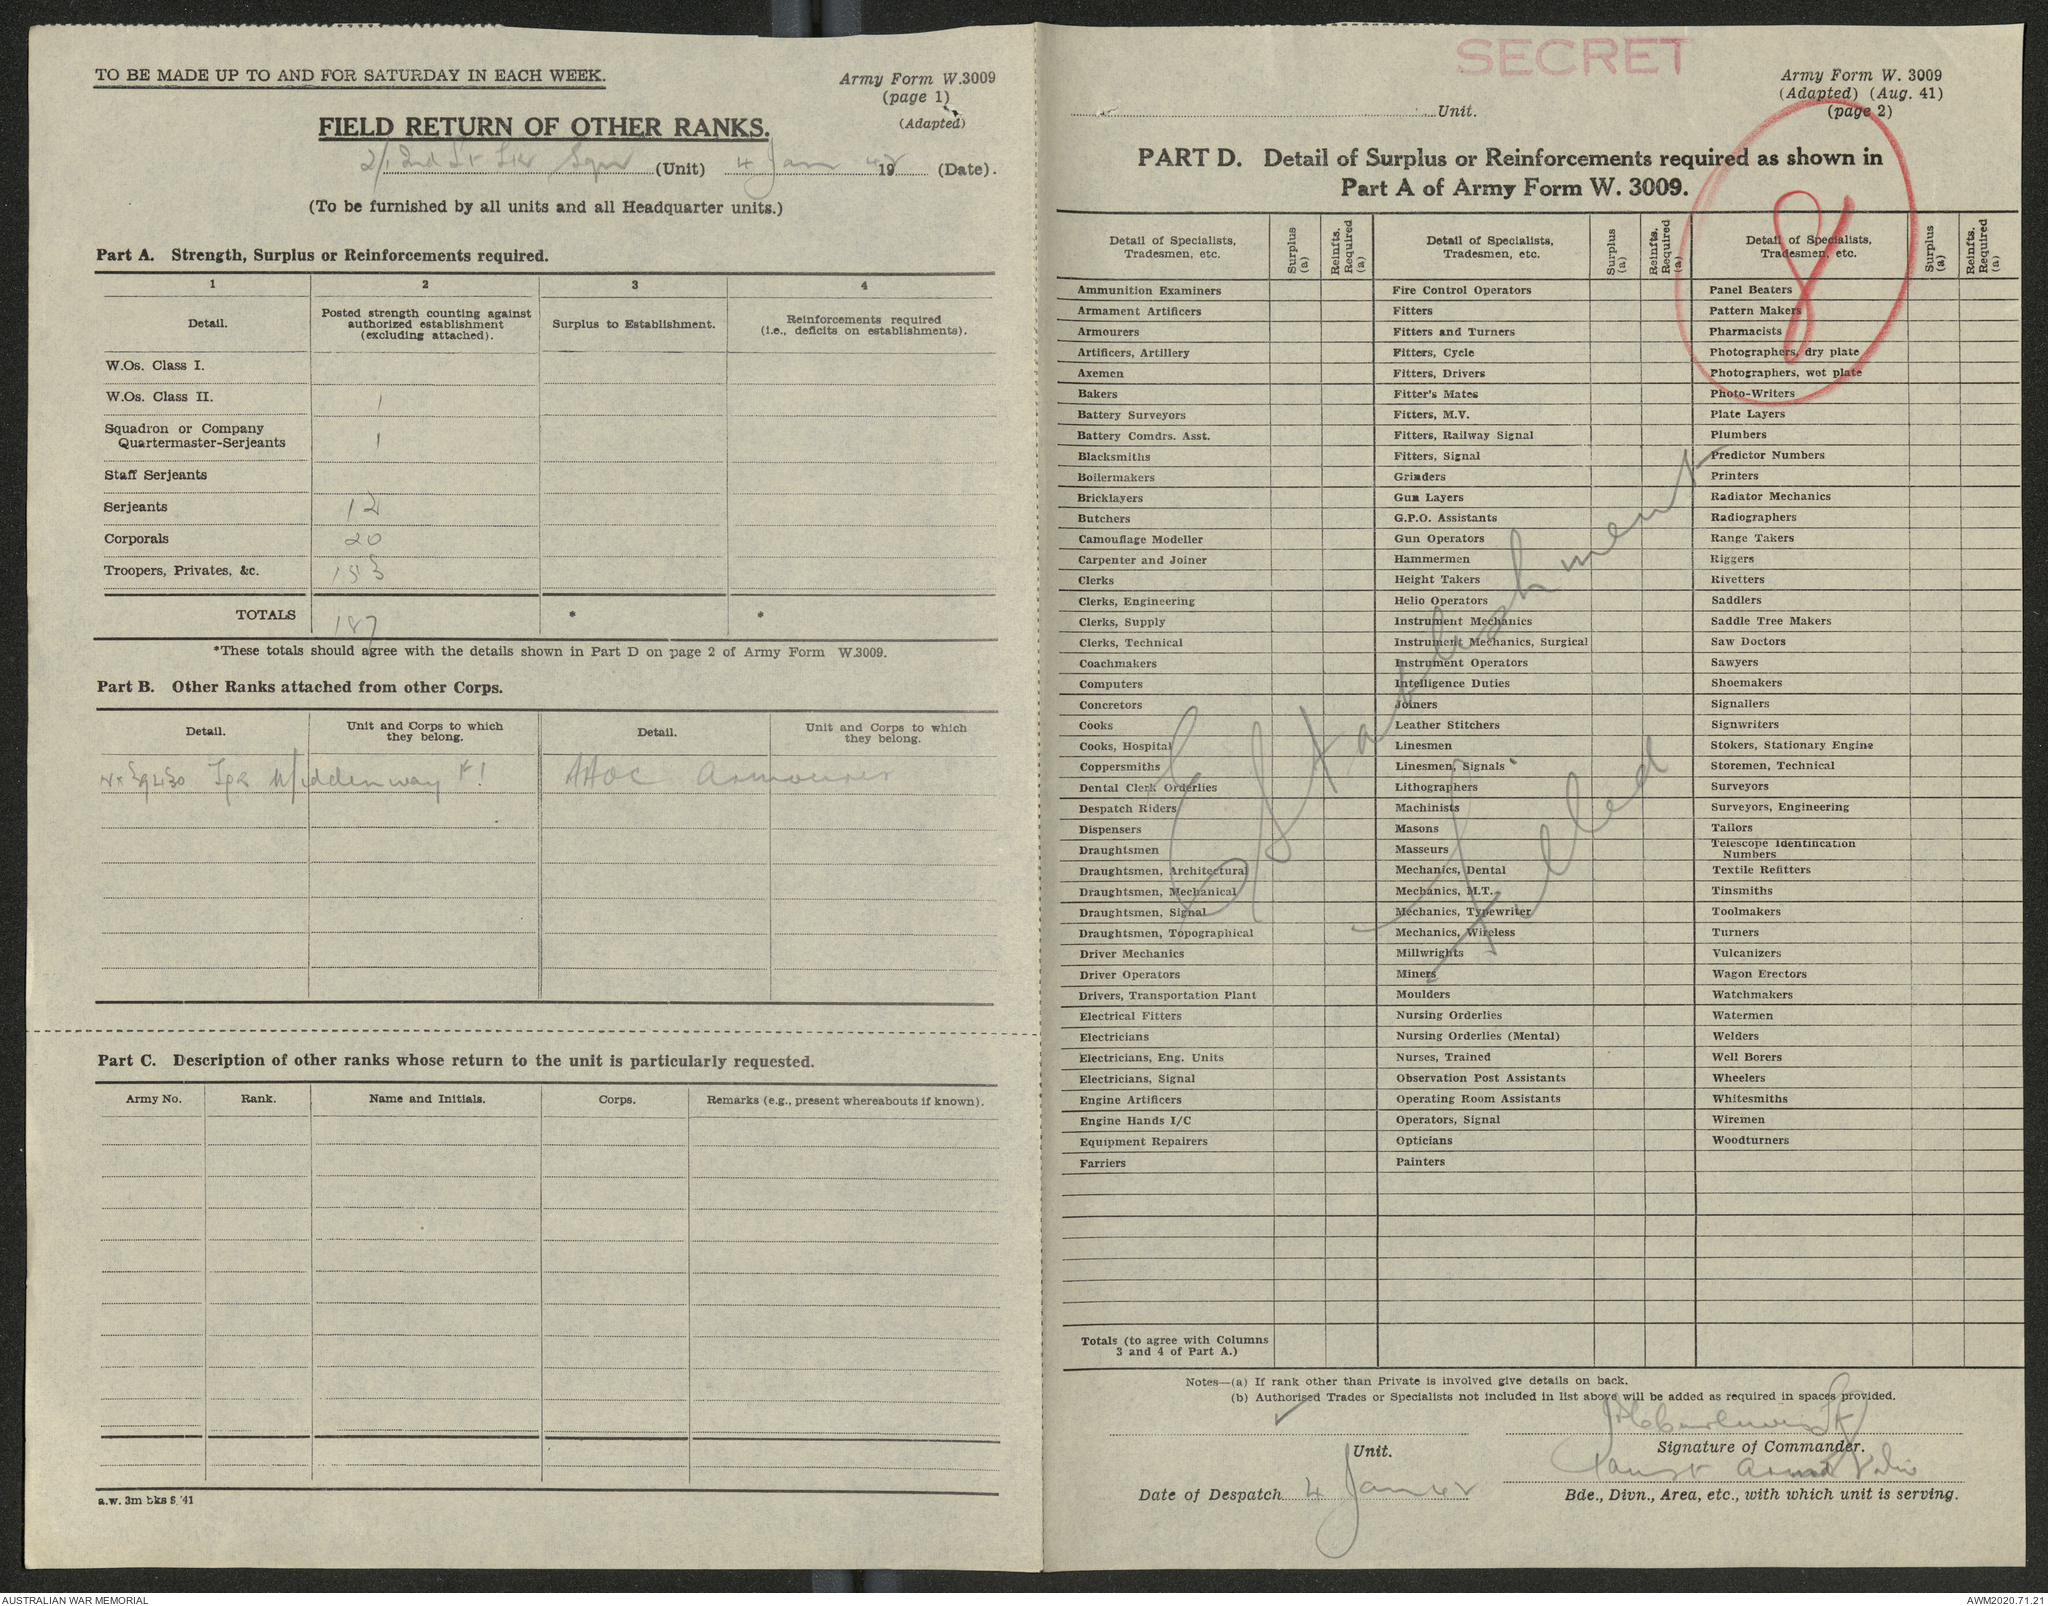 TO BE MADE UP TO AND FOR SATURDAY IN EACH WEEK.
Army Form W.3009
(page 1)
(Adapted)
FIELD RETURN OF OTHER RANKS.
2/2nd Lt Sqn (Unit) 4 Jan 1942 (Date).
(To be furnished by all units and all Headquarter units.)
Part A. Strength, Surplus or Reinforcements required.
1 2 3 4
Detail. Posted strength counting against authorized establishment (excluding attached). Surplus to Establishment. Reinforcements required (i.e., deficits on establishments).
W.Os. Class I.
W.Os. Class II. 1
Squadron or Company Quartermaster-Serjeants 1
Staff Serjeants
Serjeants 12
Corporals 20
Troopers, Privates, &c. 153
TOTALS 187 * *
*These totals should agree with the details shown in Part D on page 2 of Army Form W.3009.
Part B. Other Ranks attached from other Corps.
Detail. Unit and Corps to which they belong. Detail. Unit and Corps to which they belong.
Middenway AAOC Armourer
Part C. Description of other ranks whose return to the unit is particularly requested.
Army No. Rank. Name and Initials. Corps. Remarks (e.g., present whereabouts if known).
a.w. 3m bks 8 '41
SECRET
Army Form W. 3009
(Adapted) (Aug. 41)
(page 2)
Unit.
8
PART D. Detail of Surplus or Reinforcements required as shown in
Part A of Army Form W. 3009.
Detail of Specialists, Tradesmen, etc. Surplus (a) Reinfts. Required (a) Detail of Specialists, Tradesmen, etc. Surplus (a) Reinfts. Required (a) Detail of Specialists, Tradesmen, etc. Surplus (a) Reinfts. Required (a)
Ammunition Examiners Fire Control Operators Panel Beaters
Armament Artificers Fitters Pattern Makers
Armourers Fitters and Turners Pharmacists
Artificers, Artillery Fitters, Cycle Photographers, dry plate
Axemen Fitters, Drivers Photographers, wet plate
Bakers Fitter's Mates Photo-Writers
Battery Surveyors Fitters, M.V. Plate Layers
Battery Comdrs. Asst. Fitters, Railway Signal Plumbers
Blacksmiths Fitters, Signal Predictor Numbers
Boilermakers Grinders Printers
Bricklayers Gun Layers Radiator Mechanics
Butchers G.P.O. Assistants Radiographers
Camouflage Modeller Gun Operators Range Takers
Carpenter and Joiner Hammermen Riggers
Clerks Height Takers Rivetters
Clerks, Engineering Helio Operators Saddlers
Clerks, Supply Instrument Mechanics Saddle Tree Makers
Clerks, Technical Instrument Mechanics, Surgical Saw Doctors
Coachmakers Instrument Operators Sawyers
Computers Intelligence Duties Shoemakers
Concretors Joiners Signallers
Cooks Leather Stitchers Signwriters
Cooks, Hospital Linesmen Stokers, Stationary Engine
Coppersmiths Linesmen, Signals Storemen, Technical
Dental Clerk Orderlies Lithographers Surveyors
Despatch Riders Machinists Surveyors, Engineering
Dispensers Masons Tailors
Draughtsmen Masseurs Telescope Identification Numbers
Draughtsmen, Architectural Mechanics, Dental Textile Refitters
Draughtsmen, Mechanical Mechanics, M.T. Tinsmiths
Draughtsmen, Signal Mechanics, Typewriter Toolmakers
Draughtsmen, Topographical Mechanics, Wireless Turners
Driver Mechanics Millwrights Vulcanizers
Driver Operators Miners Wagon Erectors
Drivers, Transportation Plant Moulders Watchmakers
Electrical Fitters Nursing Orderlies Watermen
Electricians Nursing Orderlies (Mental) Welders
Electricians, Eng. Units Nurses, Trained Well Borers
Electricians, Signal Observation Post Assistants Wheelers
Engine Artificers Operating Room Assistants Whitesmiths
Engine Hands I/C Operators, Signal Wiremen
Equipment Repairers Opticians Woodturners
Farriers Painters
Establishment
filled
Totals (to agree with Columns 3 and 4 of Part A.)
Notes—(a) If rank other than Private is involved give details on back.
(b) Authorised Trades or Specialists not included in list above will be added as required in spaces provided.
Unit.
Signature of Commander.
1 Aust Armd Div
Date of Despatch 4 Jan 42
Bde., Divn., Area, etc., with which unit is serving.
AUSTRALIAN WAR MEMORIAL
AWM2020.71.21